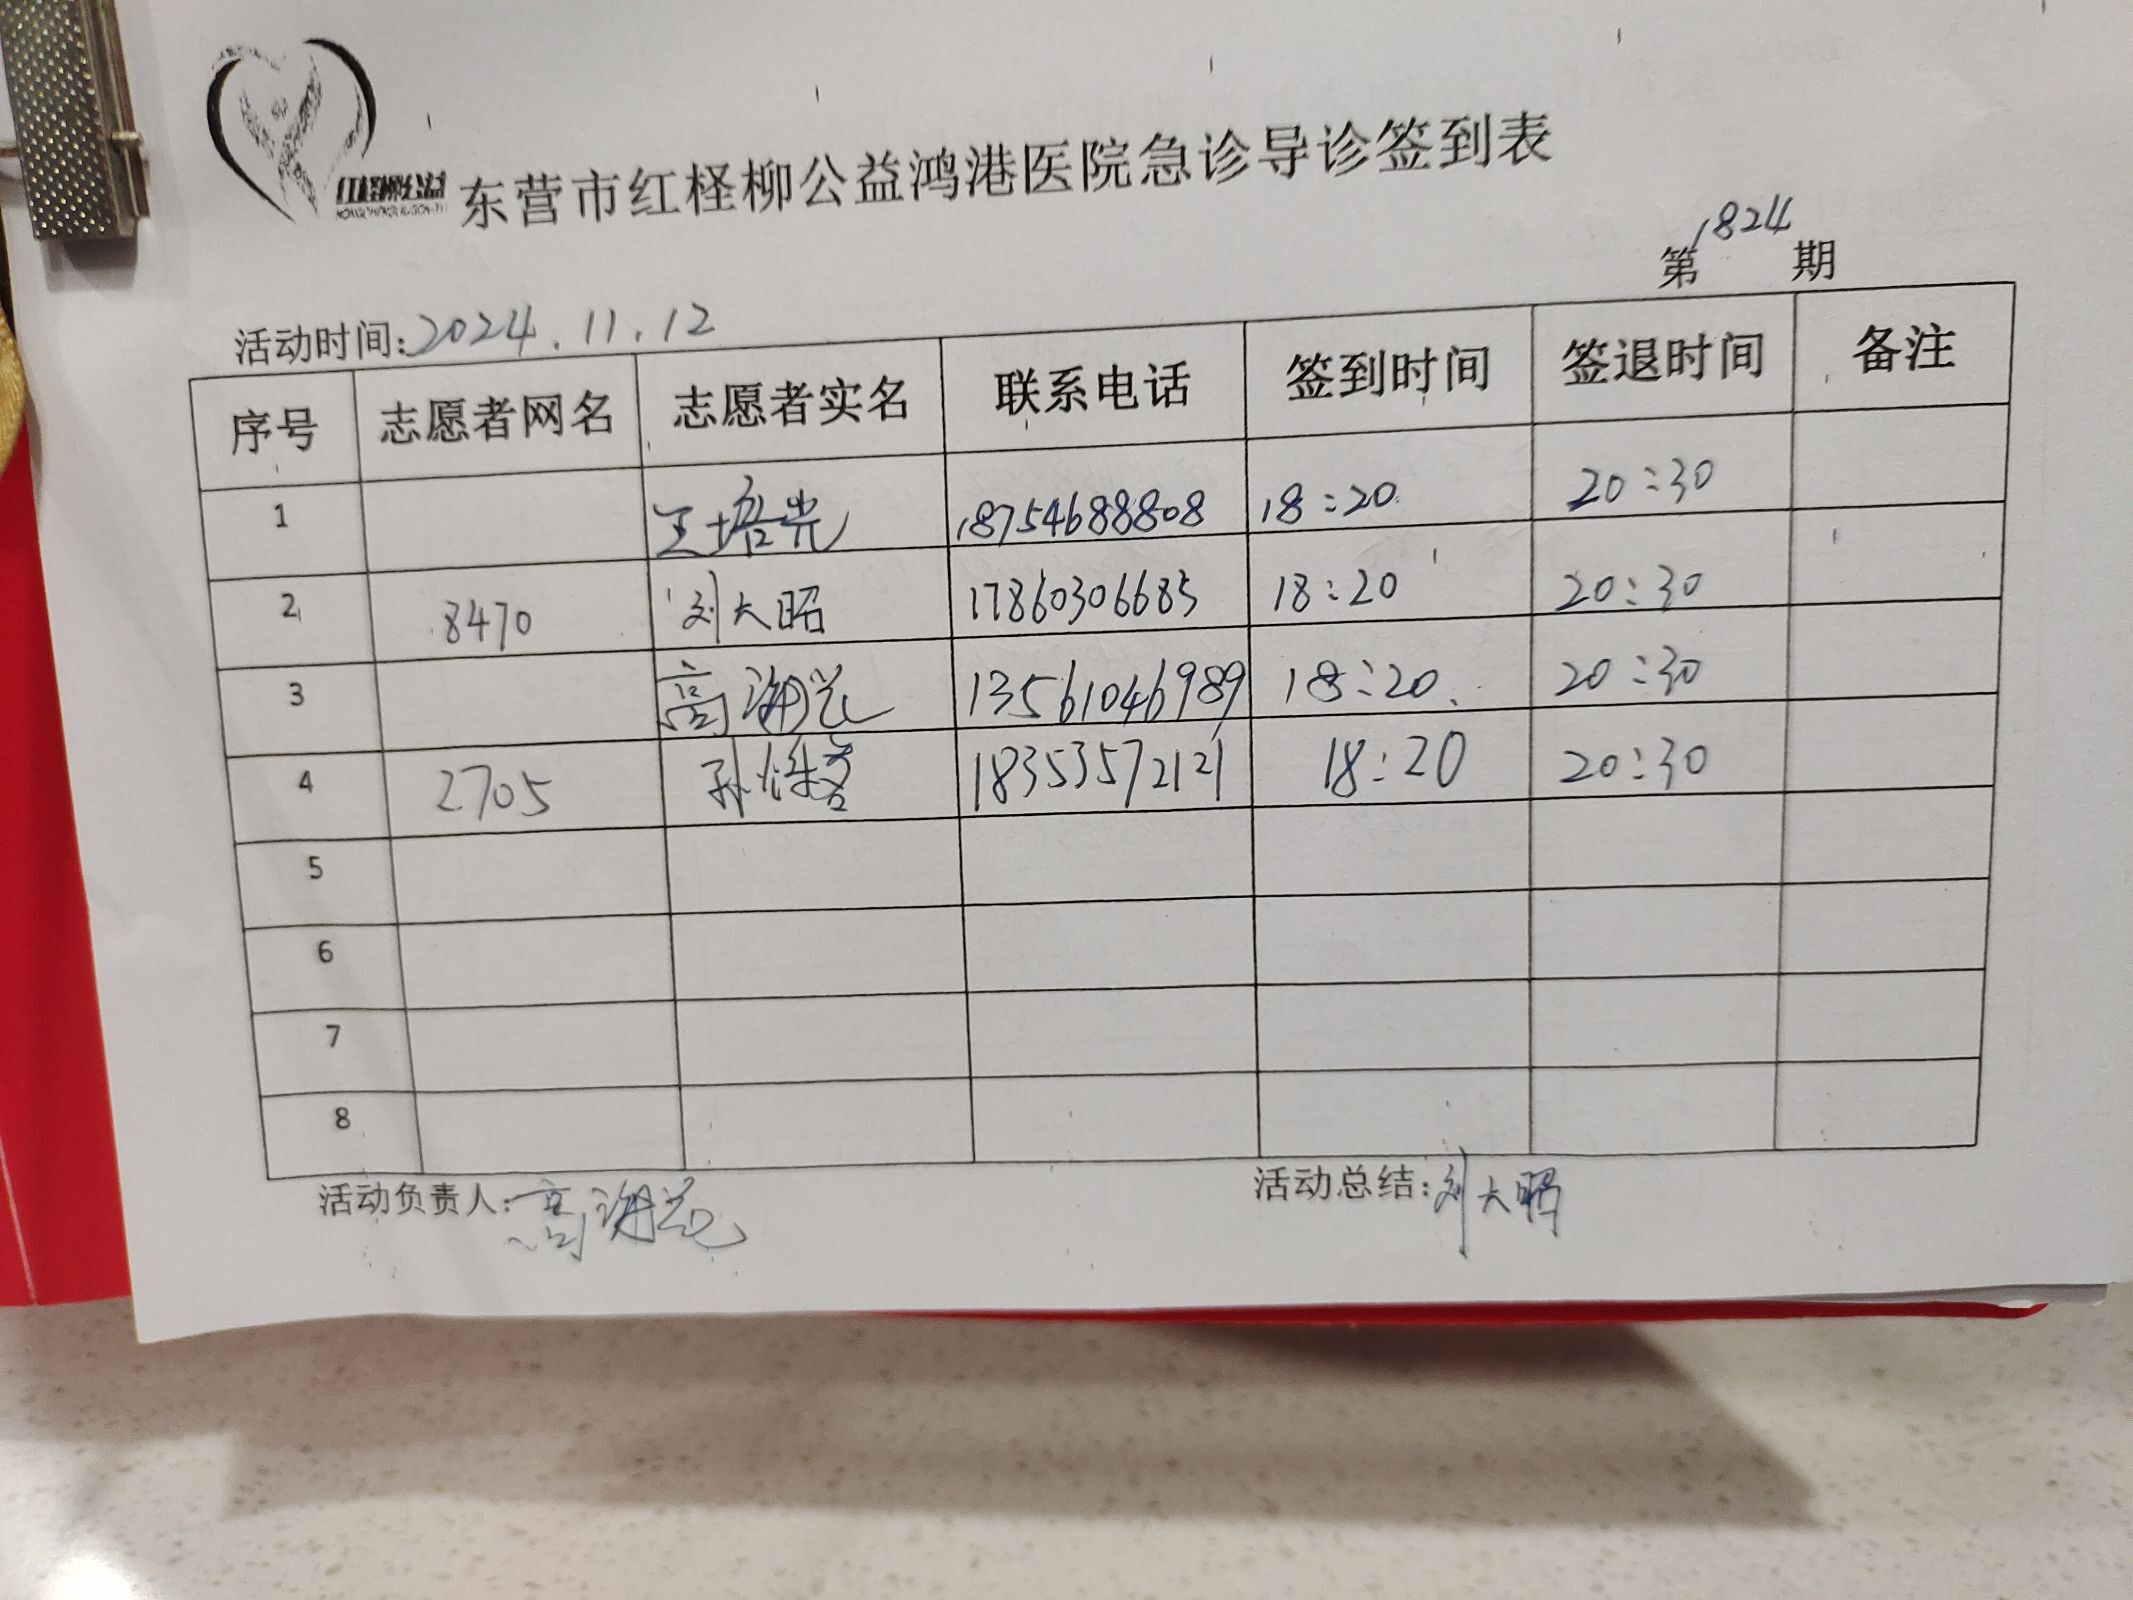 红柽柳公益
东营市红柽柳公益鸿港医院急诊导诊签到表
第1824期
活动时间:2024.11.12
序号 志愿者网名 志愿者实名 联系电话 签到时间 签退时间 备注
1 王培光 18754688808 18:20 20:30
2 8470 刘大昭 17860306685 18:20 20:30
3 高 13561046989 18:20 20:30
4 2705 孙 18353572121 18:20 20:30
5
6
7
8
活动负责人:高 活动总结:刘大昭